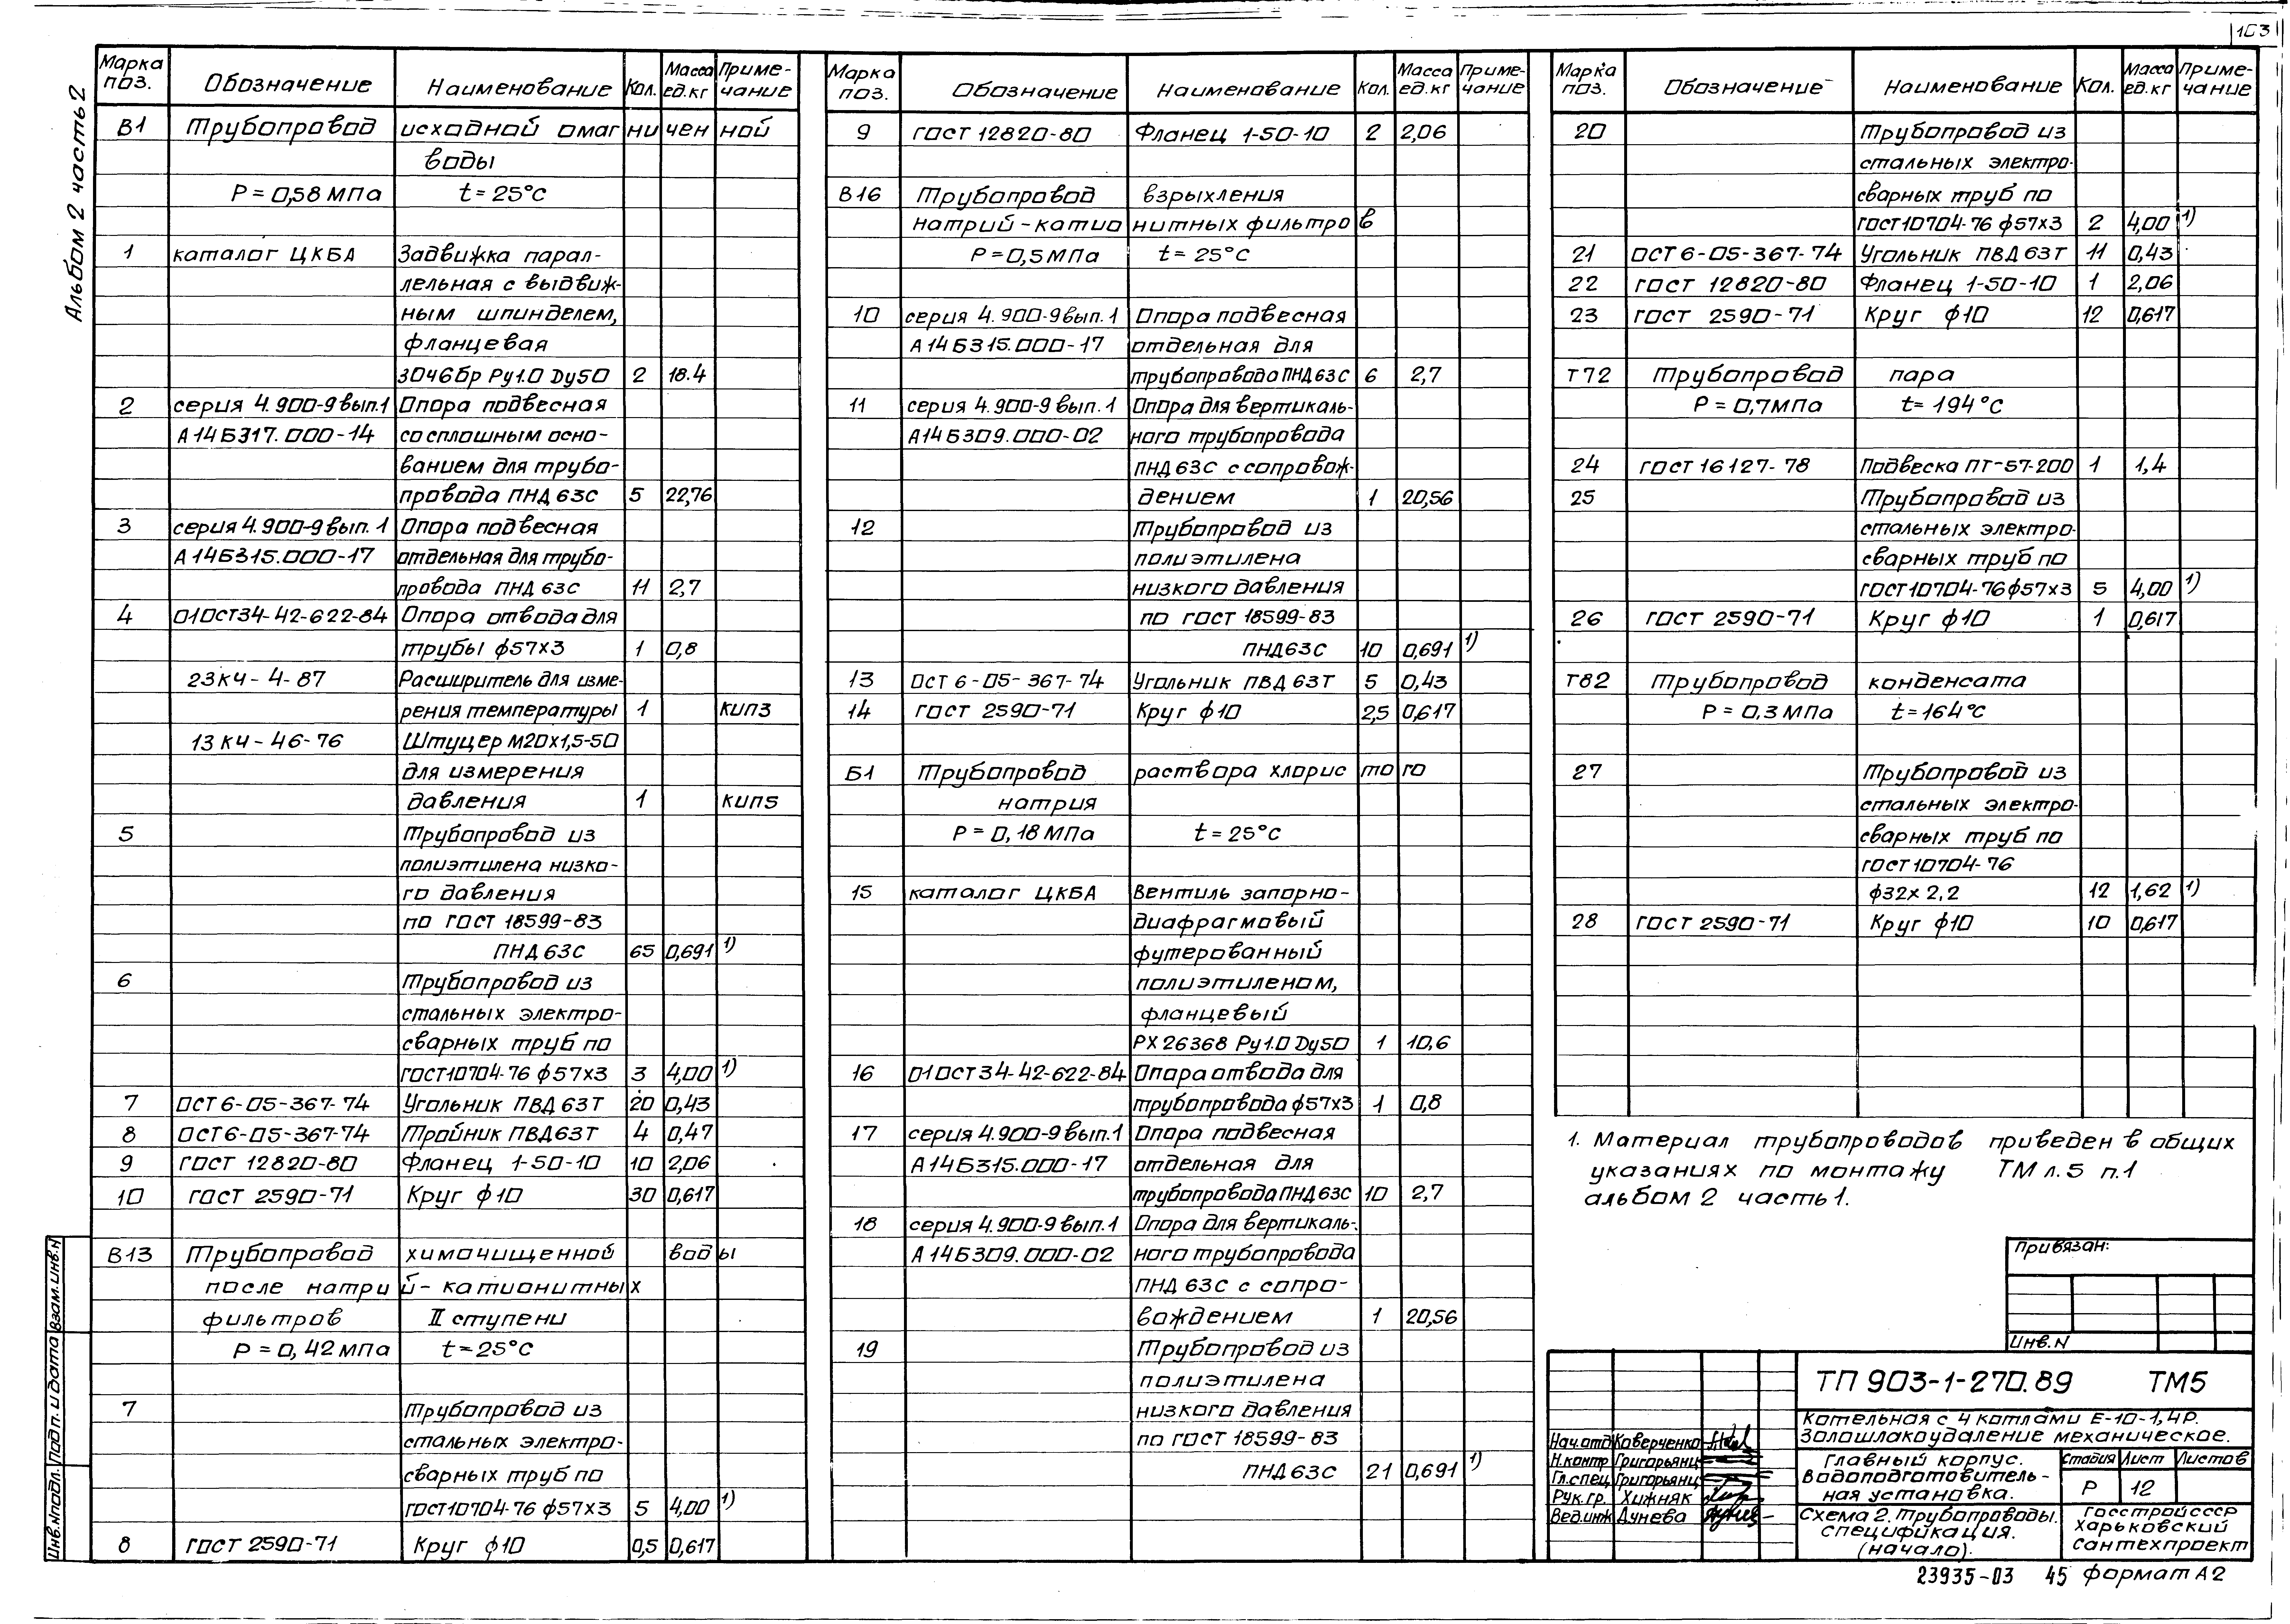 103
Альбом 2 часть 2
Марка поз. Обозначение Наименование Кол. Масса ед.кг Примечание
В1 Трубопровод исходной омагниченной
воды
Р = 0,58 МПа t = 25°С
1 каталог ЦКБА Задвижка парал-
лельная с выдвиж-
ным шпинделем,
фланцевая
30ч6бр Ру1.0 Dу50 2 18.4
2 серия 4.900-9 вып.1 Опора подвесная
А14Б317.000-14 со сплошным осно-
ванием для трубо-
провода ПНД 63С 5 22,76
3 серия 4.900-9 вып. 1 Опора подвесная
А14Б315.000-17 отдельная для трубо-
провода ПНД 63С 11 2,7
4 01ОСТ34-42-622-84 Опора отвода для
трубы ф57х3 1 0,8
23КЧ-4-87 Расширитель для изме-
рения температуры 1 КИП3
13КЧ-46-76 Штуцер М20х1,5-50
для измерения
давления 1 КИП5
5 Трубопровод из
полиэтилена низко-
го давления
по ГОСТ 18599-83
ПНД 63С 65 0,691 1)
6 Трубопровод из
стальных электро-
сварных труб по
ГОСТ10704-76 ф57х3 3 4,00 1)
7 ОСТ6-05-367-74 Угольник ПВД 63Т 20 0,43
8 ОСТ6-05-367-74 Тройник ПВД63Т 4 0,47
9 ГОСТ 12820-80 Фланец 1-50-10 10 2,06
10 ГОСТ 2590-71 Круг ф10 30 0,617
В13 Трубопровод химочищенной воды
после натрий-катионитных
фильтров II ступени
Р = 0,42 МПа t = 25°С
7 Трубопровод из
стальных электро-
сварных труб по
ГОСТ10704-76 ф57х3 5 4,00 1)
8 ГОСТ 2590-71 Круг ф10 0,5 0,617
Марка поз. Обозначение Наименование Кол. Масса ед.кг Примечание
9 ГОСТ 12820-80 Фланец 1-50-10 2 2,06
В16 Трубопровод взрыхления
натрий-катионитных фильтров
Р = 0,5 МПа t = 25°С
10 серия 4.900-9 вып.1 Опора подвесная
А14Б315.000-17 отдельная для
трубопровода ПНД 63С 6 2,7
11 серия 4.900-9 вып.1 Опора для вертикаль-
А14Б309.000-02 ного трубопровода
ПНД 63С с сопровож-
дением 1 20,56
12 Трубопровод из
полиэтилена
низкого давления
по ГОСТ 18599-83
ПНД63С 10 0,691 1)
13 ОСТ 6-05-367-74 Угольник ПВД 63Т 5 0,43
14 ГОСТ 2590-71 Круг ф10 2,5 0,617
Б1 Трубопровод раствора хлористого
натрия
Р = 0,18 МПа t = 25°С
15 каталог ЦКБА Вентиль запорно-
диафрагмовый
футерованный
полиэтиленом,
фланцевый
РХ 26368 Ру1.0 Dу50 1 10,6
16 01ОСТ34-42-622-84 Опора отвода для
трубопровода ф57х3 1 0,8
17 серия 4.900-9 вып.1 Опора подвесная
А14Б315.000-17 отдельная для
трубопровода ПНД 63С 10 2,7
18 серия 4.900-9 вып.1 Опора для вертикаль-
А14Б309.000-02 ного трубопровода
ПНД 63С с сопро-
вождением 1 20,56
19 Трубопровод из
полиэтилена
низкого давления
по ГОСТ 18599-83
ПНД 63С 21 0,691 1)
Марка поз. Обозначение Наименование Кол. Масса ед.кг Примечание
20 Трубопровод из
стальных электро-
сварных труб по
ГОСТ10704-76 ф57х3 2 4,00 1)
21 ОСТ 6-05-367-74 Угольник ПВД 63Т 11 0,43
22 ГОСТ 12820-80 Фланец 1-50-10 1 2,06
23 ГОСТ 2590-71 Круг ф10 12 0,617
Т72 Трубопровод пара
Р = 0,7МПа t = 194°С
24 ГОСТ 16127-78 Подвеска ПГ-57-200 1 1,4
25 Трубопровод из
стальных электро-
сварных труб по
ГОСТ10704-76 ф57х3 5 4,00 1)
26 ГОСТ 2590-71 Круг ф10 1 0,617
Т82 Трубопровод конденсата
Р = 0,3 МПа t = 164°С
27 Трубопровод из
стальных электро-
сварных труб по
ГОСТ10704-76
ф32х2,2 12 1,62 1)
28 ГОСТ 2590-71 Круг ф10 10 0,617
1. Материал трубопроводов приведен в общих
указаниях по монтажу ТМ л.5 п.1
альбом 2 часть 1.
Привязан:
Инв.N
ТП 903-1-270.89 ТМ5
Котельная с 4 котлами Е-10-1,4Р.
Золошлакоудаление механическое.
Нач.отд Каверченко
Н.контр Григорьянц
Гл.спец Григорьянц
Рук.гр. Хижняк
Вед.инж Дунева
Главный корпус.
Водоподготовитель-
ная установка.
Стадия Лист Листов
Р 12
Схема 2. Трубопроводы.
спецификация.
(начало).
Госстрой СССР
Харьковский
Сантехпроект
23935-03 45 формат А2
Инв.Nподл. Подп. и дата Взам.инв.N